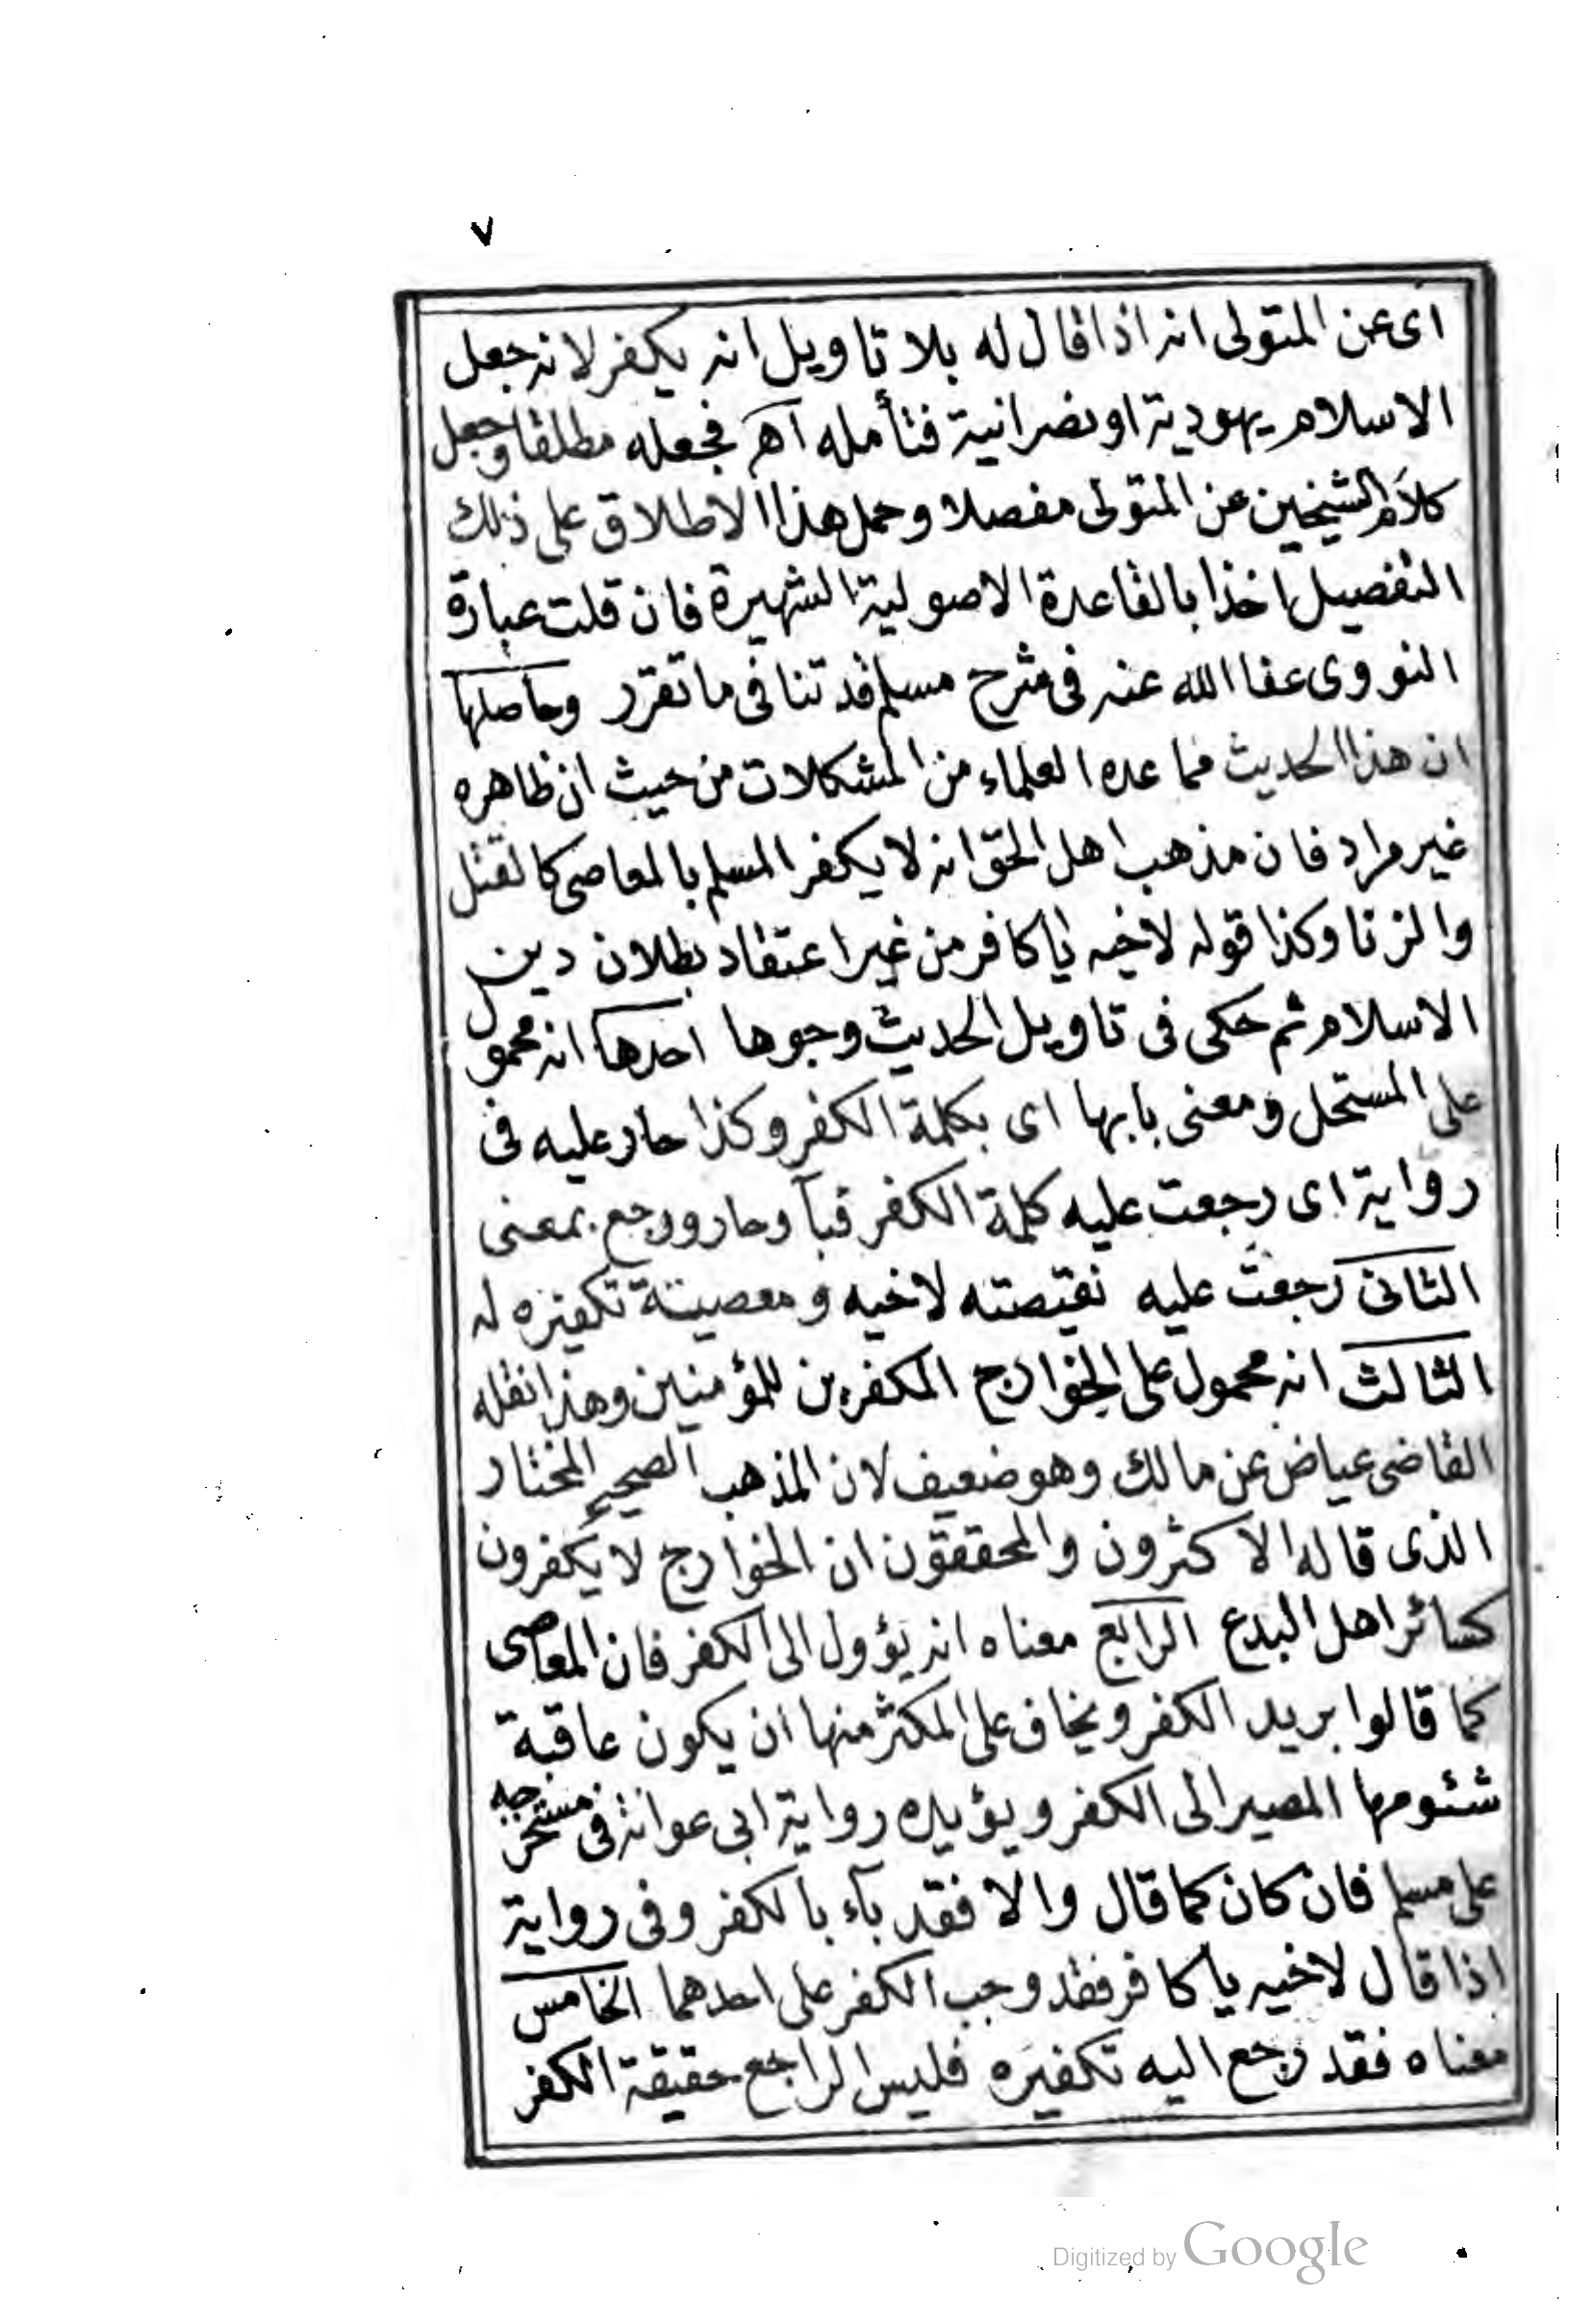 ٧
اى عن المتولى انه اذا قال له بلا تاويل انه يكفر لانه جعل
الاسلام يهودية او نصرانية فتأمله اهـ فجعله مطلقا وجعل
كلام الشيخين عن المتولى مفصلا وحمل هذا الاطلاق على ذلك
التفصيل اخذا بالقاعدة الاصولية الشهيرة فان قلت عبارة
النووى عفا الله عنه فى شرح مسلم قد تنافى ما تقرر وحاصلها
ان هذا الحديث مما عده العلماء من المشكلات من حيث ان ظاهره
غير مراد فان مذهب اهل الحق انه لا يكفر المسلم بالمعاصى كالقتل
والزنا وكذا قوله لاخيه يا كافر من غير اعتقاد بطلان دين
الاسلام ثم حكى فى تاويل الحديث وجوها احدها انه محمول
على المستحل ومعنى باء بها اى بكلمة الكفر وكذا حار عليه فى
رواية اى رجعت عليه كلمة الكفر فبآ وحار ورجع بمعنى
الثانى رجعت عليه نقيصته لاخيه ومعصية تكفيره له
الثالث انه محمول على الخوارج المكفرين للمؤمنين وهذا نقله
القاضى عياض عن مالك وهو ضعيف لان المذهب الصحيح المختار
الذى قاله الاكثرون والمحققون ان الخوارج لا يكفرون
كسائر اهل البدع الرابع معناه انه يؤول الى الكفر فان المعاصى
كما قالوا بريد الكفر ويخاف على المكثر منها ان يكون عاقبة
شئومها المصير الى الكفر ويؤيده رواية ابى عوانة فى مستخرجه
على مسلم فان كان كما قال والا فقد بآء بالكفر وفى رواية
اذا قال لاخيه يا كافر فقد وجب الكفر على احدهما الخامس
معناه فقد رجع اليه تكفيره فليس الراجع حقيقة الكفر
Digitized by Google